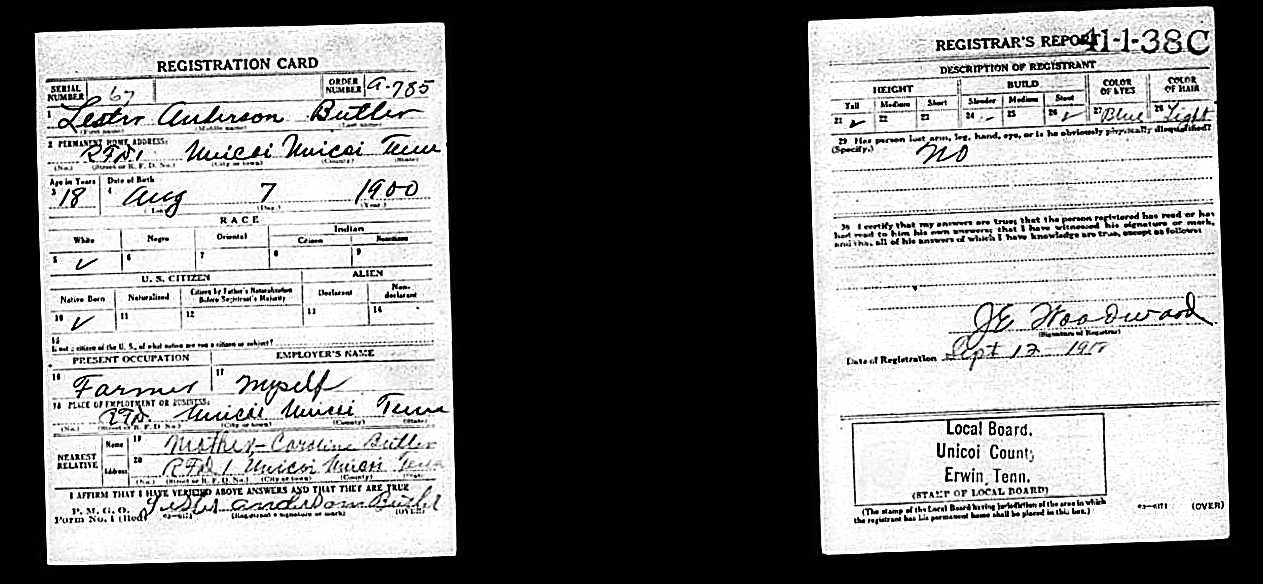 REGISTRATION CARD
SERIAL NUMBER 67 ORDER NUMBER A-785
1 Lester Anderson Butler
(First name) (Middle name) (Last name)
2 PERMANENT HOME ADDRESS:
RFD 1 Unicoi Unicoi Tenn
(No.) (Street or R. F. D. No.) (City or town) (County) (State)
Age in Years Date of Birth
3 18 4 Aug 7 1900
(Day.) (Year.)
RACE
White Negro Oriental Indian
Citizen Noncitizen
5 ✓ 6 7 8 9
U. S. CITIZEN ALIEN
Native Born Naturalized Citizen by Father's Naturalization Before Registrant's Majority Declarant Non-declarant
10 ✓ 11 12 13 14
15
If not a citizen of the U. S., of what nation are you a citizen or subject?
PRESENT OCCUPATION EMPLOYER'S NAME
16 Farmer 17 Myself
18 PLACE OF EMPLOYMENT OR BUSINESS:
RFD. Unicoi Unicoi Tenn
(No.) (Street or R. F. D. No.) (City or town) (County) (State)
NEAREST RELATIVE
Name 19 Mother-Caroline Butler
Address 20 RFD 1 Unicoi Unicoi Tenn
(No.) (Street or R. F. D. No.) (City or town) (County) (State)
I AFFIRM THAT I HAVE VERIFIED ABOVE ANSWERS AND THAT THEY ARE TRUE
P. M. G. O.
Form No. 1 (Red) Lester anderson Butler
(Registrant's signature or mark) (OVER)
REGISTRAR'S REPORT 41-1-38 C
DESCRIPTION OF REGISTRANT
HEIGHT BUILD COLOR OF EYES COLOR OF HAIR
Tall Medium Short Slender Medium Stout
21 ✓ 22 23 24 25 26 ✓ 27 Blue 28 Light
29 Has person lost arm, leg, hand, eye, or is he obviously physically disqualified?
(Specify.) No
30 I certify that my answers are true; that the person registered has read or has
had read to him his own answers; that I have witnessed his signature or mark,
and that all of his answers of which I have knowledge are true, except as follows:
JE Woodward
(Signature of Registrar)
Date of Registration Sept 12 - 1918
Local Board,
Unicoi County
Erwin, Tenn.
(STAMP OF LOCAL BOARD)
(The stamp of the Local Board having jurisdiction of the area in which
the registrant has his permanent home shall be placed in this box.)
03-6171 (OVER)